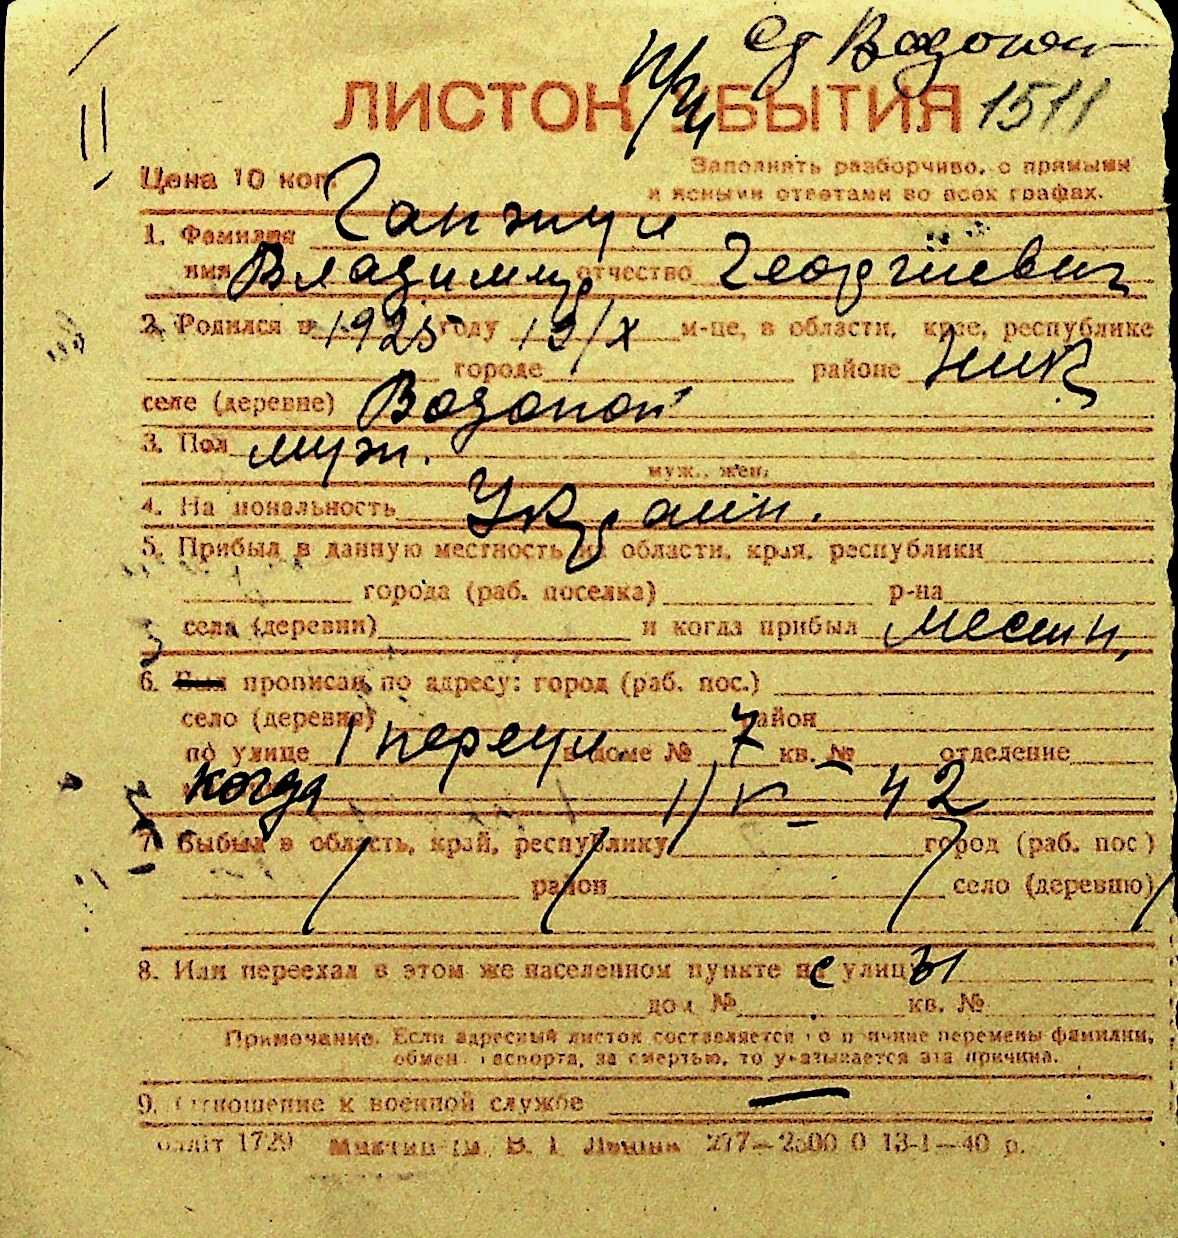 Водопой
ЛИСТОК УБЫТИЯ 1511
Цена 10 коп.
Заполнять разборчиво, с прямыми
и ясными ответами во всех графах.
1. Фамилия Ганжул
имя Владимир отчество Георгиевич
2. Родился в 1925 году 19/X м-це, в области, крае, республике
городе районе Ник
селе (деревне) Водопой
3. Пол муж.
муж., жен.
4. Национальность Украин.
5. Прибыл в данную местность из области, края, республики
города (раб. поселка) р-на
села (деревни) и когда прибыл местн,
6. Был прописан по адресу: город (раб. пос.)
село (деревня) район
по улице 1 переул. в доме № 7 кв. № отделение
когда 42
7. Выбыл в область, край, республику город (раб. пос.)
район село (деревню)
8. Или переехал в этом же населенном пункте на улицу
дом № кв. №
Примечание. Если адресный листок составляется по причине перемены фамилии,
обмен паспорта, за смертью, то указывается эта причина.
9. Отношение к военной службе —
1729 В. І. Леніна 277—2500 0 13-I—40 р.